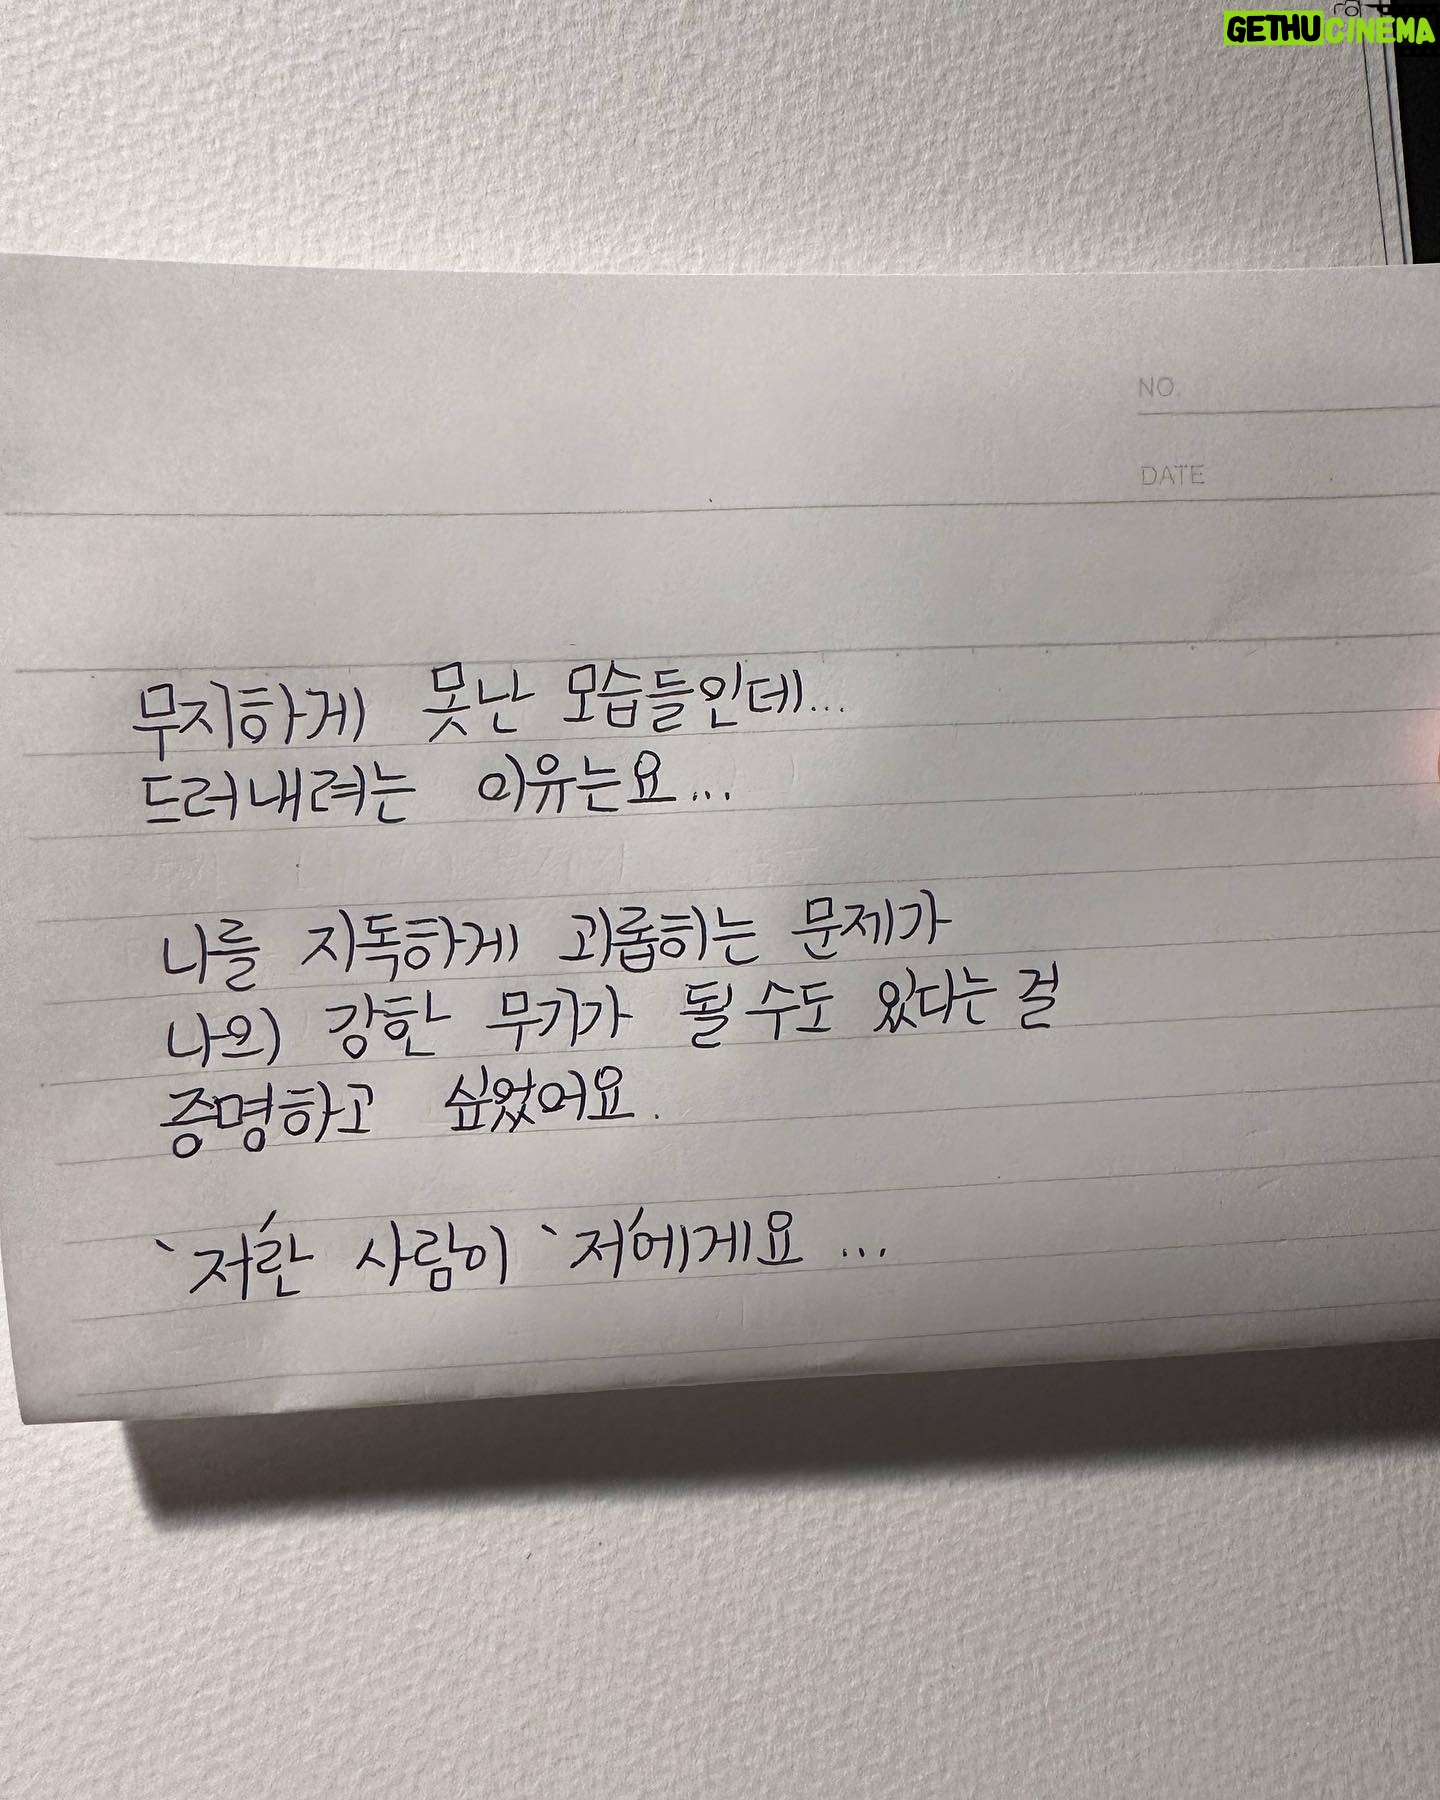 GETHUCINEMA
NO.
DATE
무지하게 못난 모습들인데...
드러내려는 이유는요...
나를 지독하게 괴롭히는 문제가
나의 강한 무기가 될 수도 있다는 걸
증명하고 싶었어요.
`저'란 사람이 `저'에게요 ...